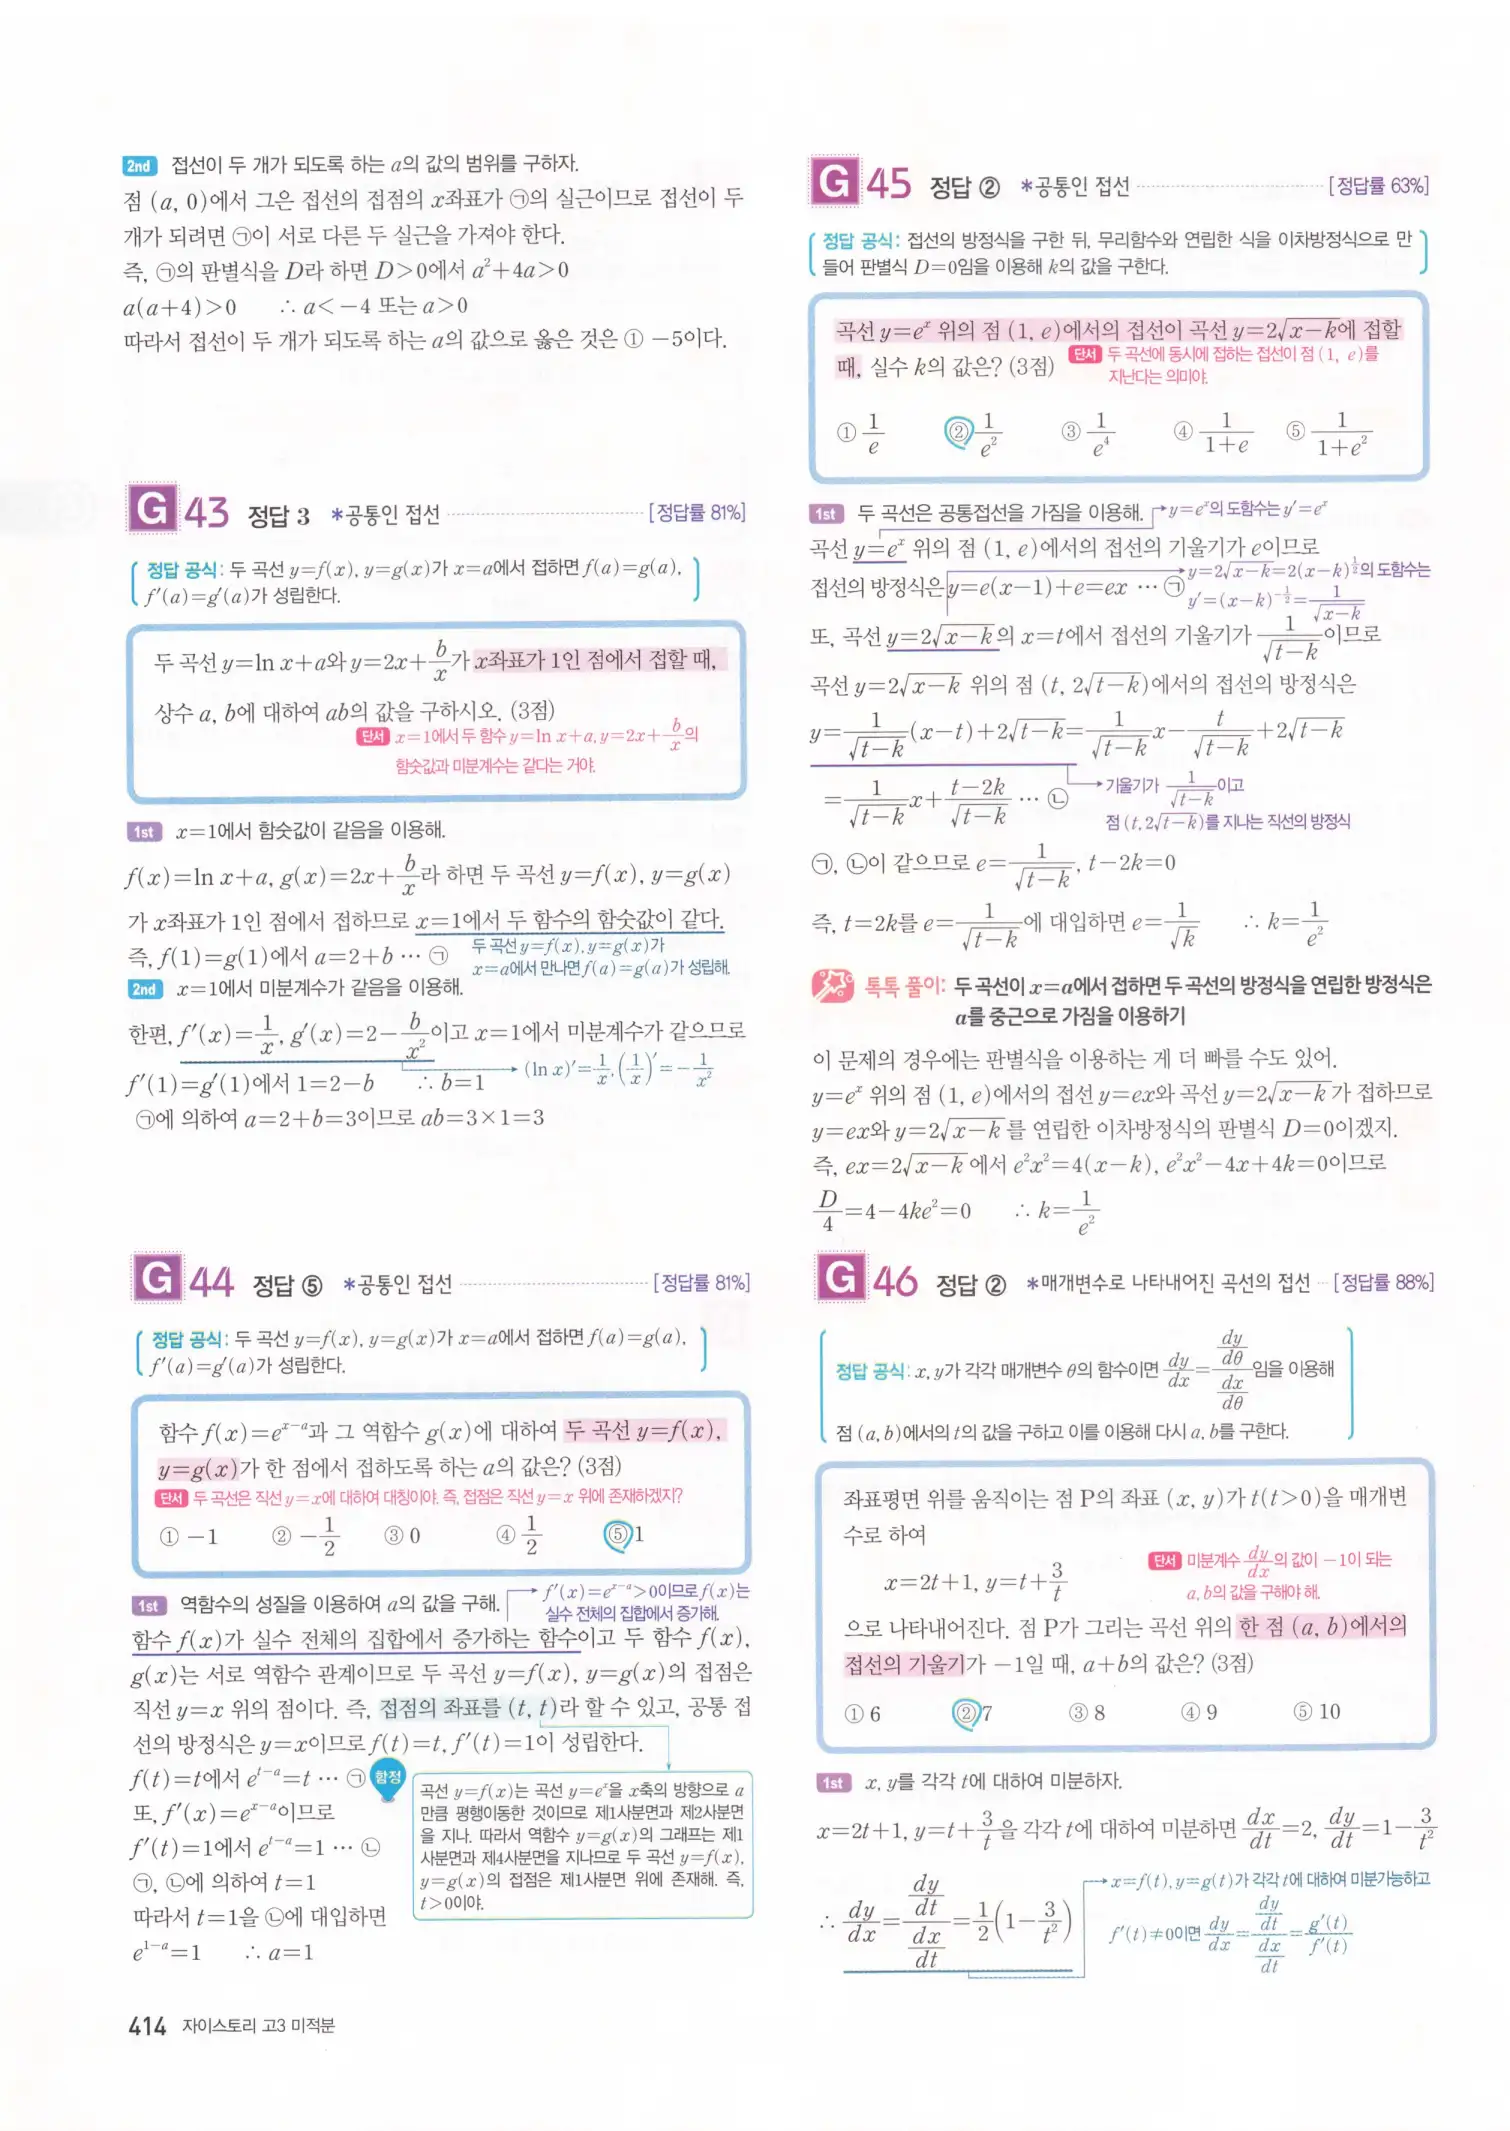 2nd 접선이 두 개가 되도록 하는 a의 값의 범위를 구하자.
점 (a, 0)에서 그은 접선의 접점의 x좌표가 ㉠의 실근이므로 접선이 두
개가 되려면 ㉠이 서로 다른 두 실근을 가져야 한다.
즉, ㉠의 판별식을 D라 하면 D>0에서 a²+4a>0
a(a+4)>0 ∴ a<-4 또는 a>0
따라서 접선이 두 개가 되도록 하는 a의 값으로 옳은 것은 ① -5이다.
G 43 정답 3 *공통인 접선 [정답률 81%]
정답 공식: 두 곡선 y=f(x), y=g(x)가 x=a에서 접하면 f(a)=g(a),
f'(a)=g'(a)가 성립한다.
두 곡선 y=ln x+a와 y=2x+b/x가 x좌표가 1인 점에서 접할 때,
상수 a, b에 대하여 ab의 값을 구하시오. (3점)
단서 x=1에서 두 함수 y=ln x+a, y=2x+b/x의
함숫값과 미분계수는 같다는 거야.
1st x=1에서 함숫값이 같음을 이용해.
f(x)=ln x+a, g(x)=2x+b/x라 하면 두 곡선 y=f(x), y=g(x)
가 x좌표가 1인 점에서 접하므로 x=1에서 두 함수의 함숫값이 같다.
즉, f(1)=g(1)에서 a=2+b … ㉠
두 곡선 y=f(x), y=g(x)가
x=a에서 만나면 f(a)=g(a)가 성립해.
2nd x=1에서 미분계수가 같음을 이용해.
한편, f'(x)=1/x, g'(x)=2-b/x²이고 x=1에서 미분계수가 같으므로
f'(1)=g'(1)에서 1=2-b ∴ b=1
(ln x)'=1/x, (1/x)'=-1/x²
㉠에 의하여 a=2+b=3이므로 ab=3×1=3
G 44 정답 ⑤ *공통인 접선 [정답률 81%]
정답 공식: 두 곡선 y=f(x), y=g(x)가 x=a에서 접하면 f(a)=g(a),
f'(a)=g'(a)가 성립한다.
함수 f(x)=e^(x-a)과 그 역함수 g(x)에 대하여 두 곡선 y=f(x),
y=g(x)가 한 점에서 접하도록 하는 a의 값은? (3점)
단서 두 곡선은 직선 y=x에 대하여 대칭이야. 즉, 접점은 직선 y=x 위에 존재하겠지?
① -1 ② -1/2 ③ 0 ④ 1/2 ⑤ 1
1st 역함수의 성질을 이용하여 a의 값을 구해.
f'(x)=e^(x-a)>0이므로 f(x)는
실수 전체의 집합에서 증가해.
함수 f(x)가 실수 전체의 집합에서 증가하는 함수이고 두 함수 f(x),
g(x)는 서로 역함수 관계이므로 두 곡선 y=f(x), y=g(x)의 접점은
직선 y=x 위의 점이다. 즉, 접점의 좌표를 (t, t)라 할 수 있고, 공통 접
선의 방정식은 y=x이므로 f(t)=t, f'(t)=1이 성립한다.
f(t)=t에서 e^(t-a)=t … ㉠
또, f'(x)=e^(x-a)이므로
f'(t)=1에서 e^(t-a)=1 … ㉡
㉠, ㉡에 의하여 t=1
따라서 t=1을 ㉡에 대입하면
e^(1-a)=1 ∴ a=1
함정
곡선 y=f(x)는 곡선 y=e^x을 x축의 방향으로 a
만큼 평행이동한 것이므로 제1사분면과 제2사분면
을 지나. 따라서 역함수 y=g(x)의 그래프는 제1
사분면과 제4사분면을 지나므로 두 곡선 y=f(x),
y=g(x)의 접점은 제1사분면 위에 존재해. 즉,
t>0이야.
414 자이스토리 고3 미적분
G 45 정답 ② *공통인 접선 [정답률 63%]
정답 공식: 접선의 방정식을 구한 뒤, 무리함수와 연립한 식을 이차방정식으로 만
들어 판별식 D=0임을 이용해 k의 값을 구한다.
곡선 y=e^x 위의 점 (1, e)에서의 접선이 곡선 y=2√(x-k)에 접할
때, 실수 k의 값은? (3점)
단서 두 곡선에 동시에 접하는 접선이 점 (1, e)를
지난다는 의미야.
① 1/e ② 1/e² ③ 1/e⁴ ④ 1/(1+e) ⑤ 1/(1+e²)
1st 두 곡선은 공통접선을 가짐을 이용해.
y=e^x의 도함수는 y'=e^x
곡선 y=e^x 위의 점 (1, e)에서의 접선의 기울기가 e이므로
접선의 방정식은 y=e(x-1)+e=ex … ㉠
y=2√(x-k)=2(x-k)^(1/2)의 도함수는
y'=(x-k)^(-1/2)=1/√(x-k)
또, 곡선 y=2√(x-k)의 x=t에서 접선의 기울기가 1/√(t-k)이므로
곡선 y=2√(x-k) 위의 점 (t, 2√(t-k))에서의 접선의 방정식은
y=1/√(t-k)(x-t)+2√(t-k)=1/√(t-k) x-t/√(t-k)+2√(t-k)
=1/√(t-k) x+(t-2k)/√(t-k) … ㉡
기울기가 1/√(t-k)이고
점 (t, 2√(t-k))를 지나는 직선의 방정식
㉠, ㉡이 같으므로 e=1/√(t-k), t-2k=0
즉, t=2k를 e=1/√(t-k)에 대입하면 e=1/√k ∴ k=1/e²
톡톡 풀이: 두 곡선이 x=a에서 접하면 두 곡선의 방정식을 연립한 방정식은
a를 중근으로 가짐을 이용하기
이 문제의 경우에는 판별식을 이용하는 게 더 빠를 수도 있어.
y=e^x 위의 점 (1, e)에서의 접선 y=ex와 곡선 y=2√(x-k)가 접하므로
y=ex와 y=2√(x-k)를 연립한 이차방정식의 판별식 D=0이겠지.
즉, ex=2√(x-k)에서 e²x²=4(x-k), e²x²-4x+4k=0이므로
D/4=4-4ke²=0 ∴ k=1/e²
G 46 정답 ② *매개변수로 나타내어진 곡선의 접선 [정답률 88%]
정답 공식: x, y가 각각 매개변수 θ의 함수이면 dy/dx=(dy/dθ)/(dx/dθ)임을 이용해
점 (a, b)에서의 t의 값을 구하고 이를 이용해 다시 a, b를 구한다.
좌표평면 위를 움직이는 점 P의 좌표 (x, y)가 t(t>0)을 매개변
수로 하여
x=2t+1, y=t+3/t
단서 미분계수 dy/dx의 값이 -1이 되는
a, b의 값을 구해야 해.
으로 나타내어진다. 점 P가 그리는 곡선 위의 한 점 (a, b)에서의
접선의 기울기가 -1일 때, a+b의 값은? (3점)
① 6 ② 7 ③ 8 ④ 9 ⑤ 10
1st x, y를 각각 t에 대하여 미분하자.
x=2t+1, y=t+3/t을 각각 t에 대하여 미분하면 dx/dt=2, dy/dt=1-3/t²
∴ dy/dx=(dy/dt)/(dx/dt)=1/2(1-3/t²)
x=f(t), y=g(t)가 각각 t에 대하여 미분가능하고
f'(t)≠0이면 dy/dx=(dy/dt)/(dx/dt)=g'(t)/f'(t)